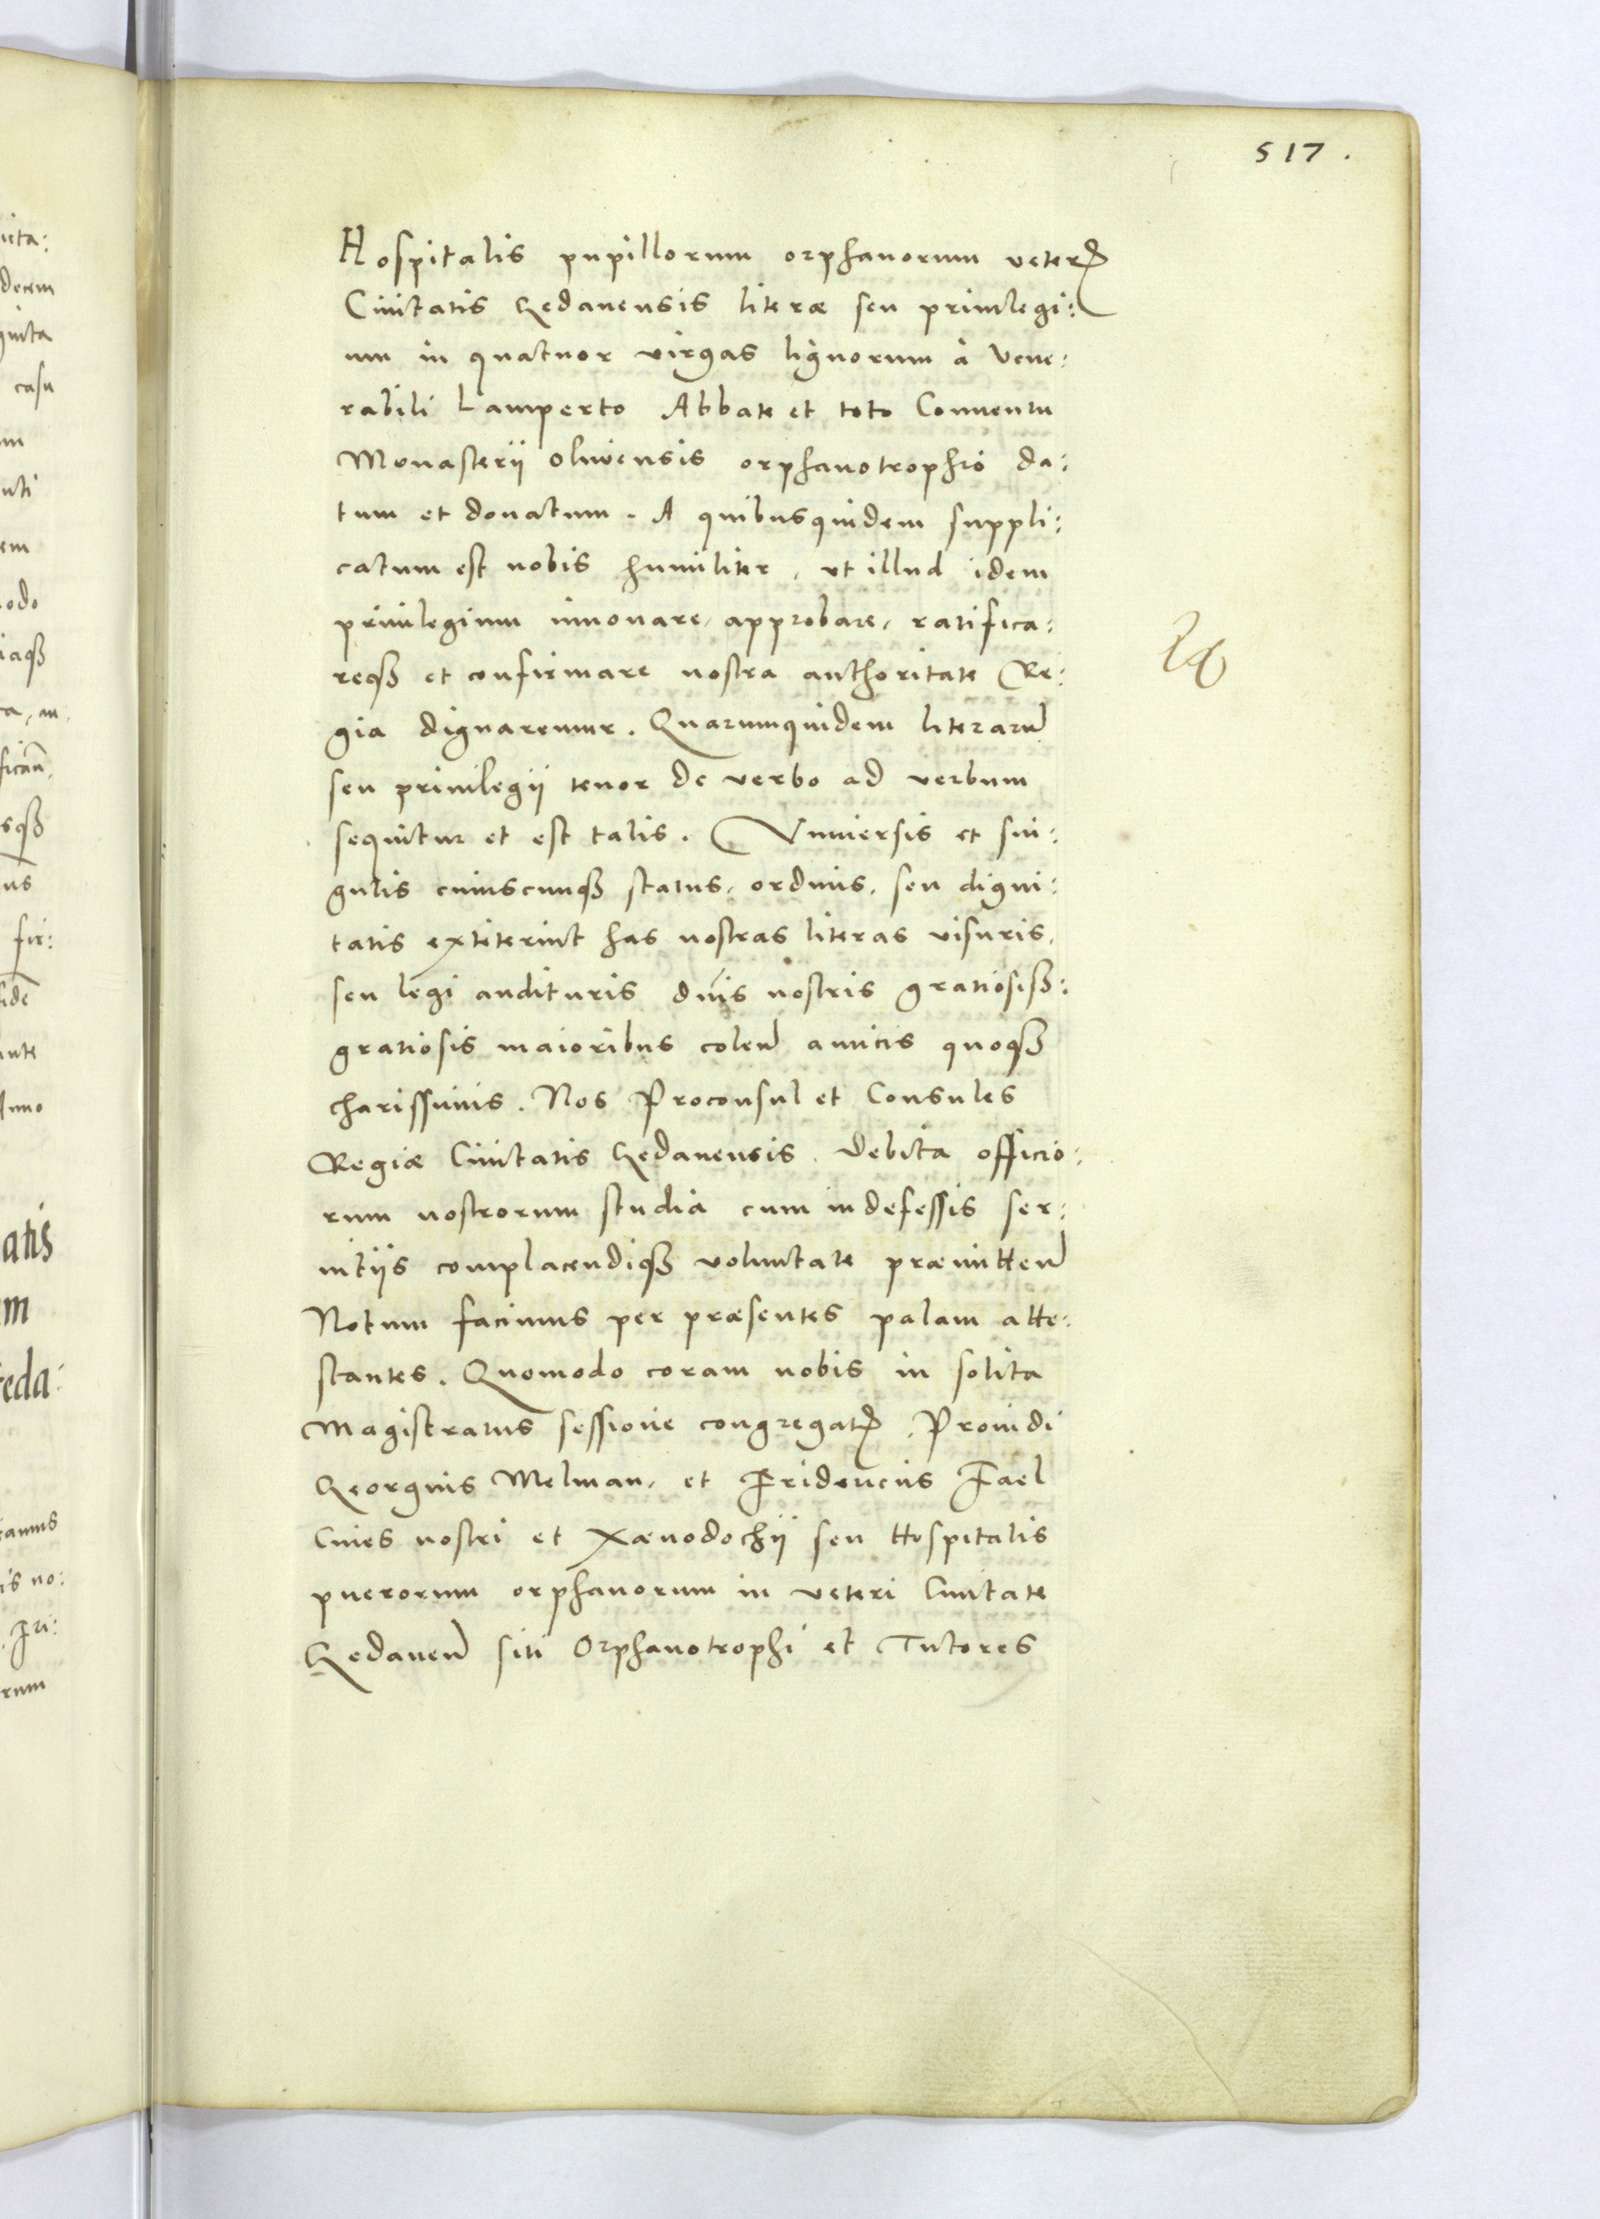 517.
Hospitalis pupillorum orphanorum veter
Ciuitatis Gedanensis literæ seu priuilegi:
um in quatuor virgas lignorum à Vene:
rabili Lamperto Abbate et toto Conuentu
Monasterij Oliuensis orphanotrophio da:
tum et donatum. A quibusquidem suppli:
catum est nobis humiliter, vt illud idem
priuilegium innouare, approbare, ratifica:
reqꝫ et confirmare nostra authoritate Re:
gia dignaremur. Quarumquidem literarum̄
seu priuilegij tenor de verbo ad verbum
sequitur et est talis. Vniuersis et sin:
gulis cuiuscunqꝫ status, ordinis, seu digni:
tatis extiterint has nostras literas visuris,
seu legi audituris dnīs nostris gratiosiss:
gratiosis maioribus colen̄ amicis quoqꝫ
charissimis. Nos Proconsul et Consules
Regiæ Ciuitatis Gedanensis. Debita officio:
rum nostrorum studia cum indefessis ser:
uitijs complacendiqꝫ voluntate præmitten̄
Notum facimus per præsentes palam atte:
stantes. Quomodo coram nobis in solita
Magistratus sessione congregat, Prouidi
Georgius Melman, et Fridericus Fael
Ciues nostri et Xænodochij seu Hospitalis
puerorum orphanorum in veteri Ciuitate
Gedanen̄ siti Orphanotrophi et Tutores